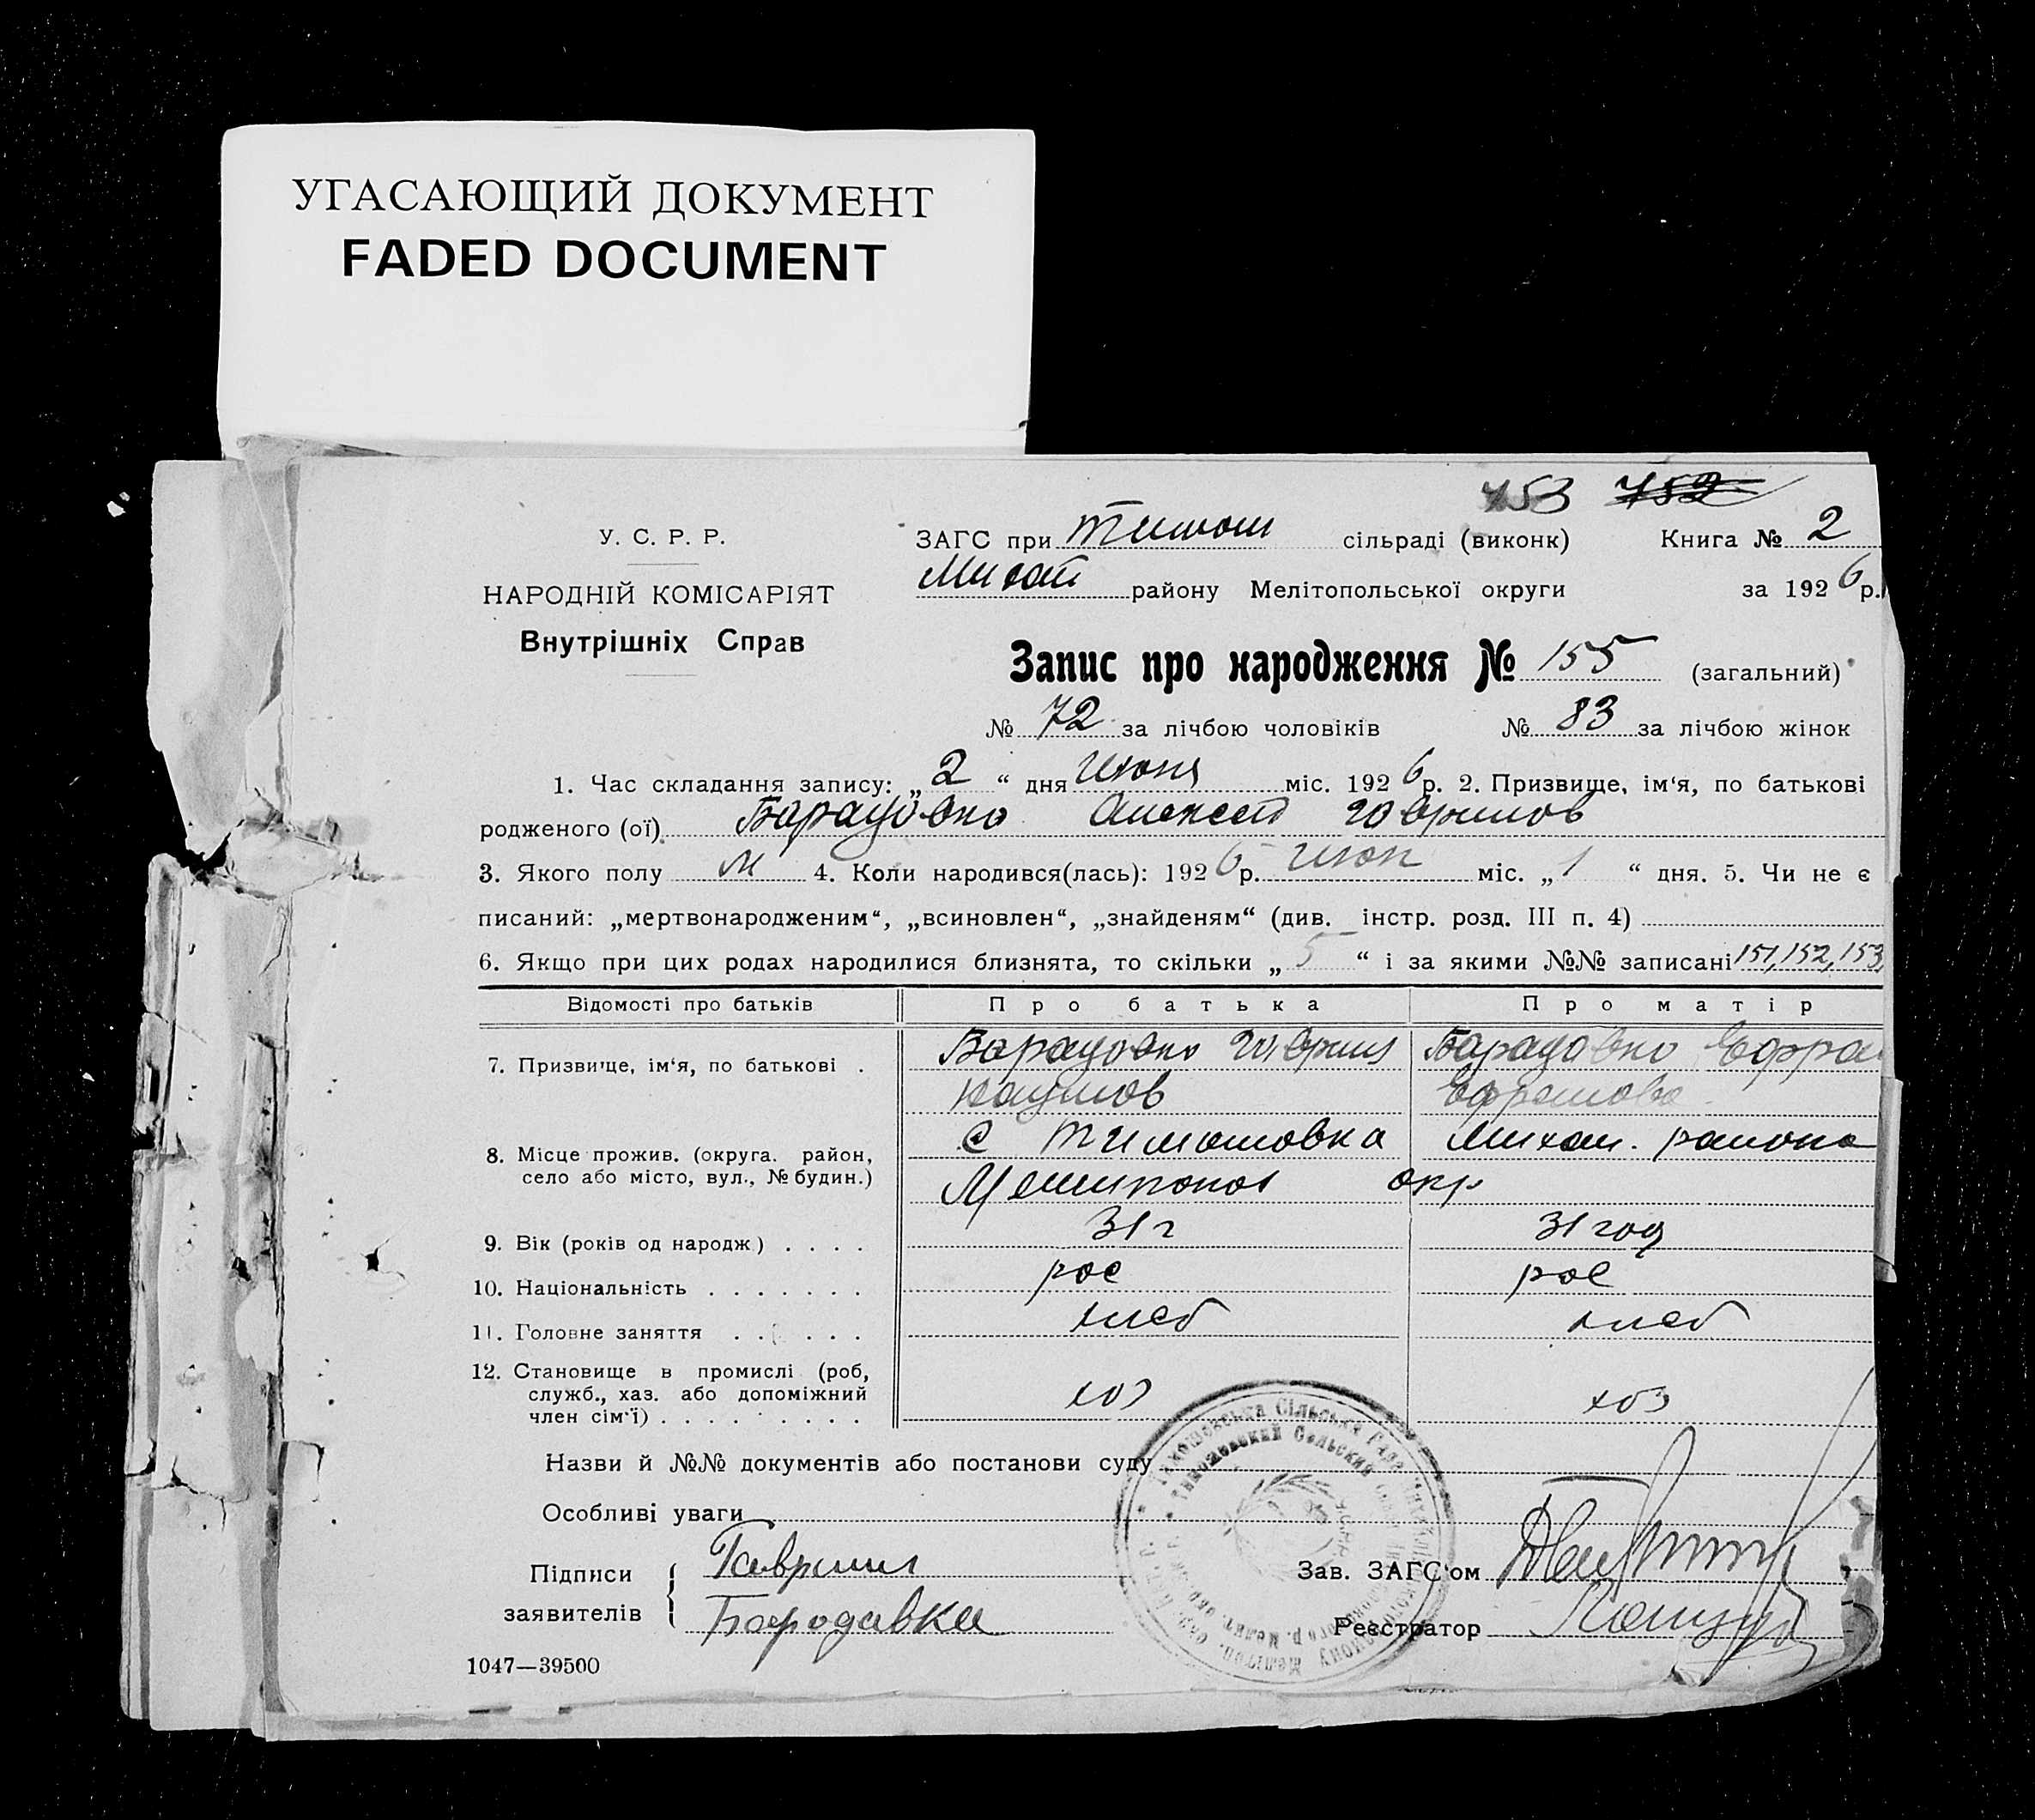 УГАСАЮЩИЙ ДОКУМЕНТ
FADED DOCUMENT
753 752
У. С. Р. Р.
НАРОДНІЙ КОМІСАРІЯТ
Внутрішніх Справ
ЗАГС при Тимош сільраді (виконк) Книга № 2
Михай району Мелітопольської округи за 1926р.
Запис про народження № 155 (загальний)
№ 72 за лічбою чоловіків № 83 за лічбою жінок
1. Час складання запису: „ 2 “ дня Июня міс. 1926р. 2. Призвище, ім‘я, по батькові
родженого (ої) Барадовко Алексей Гаврилов
3. Якого полу м 4. Коли народився(лась): 1926р. Июн міс. „ 1 “ дня. 5. Чи не є
писаний: „мертвонародженим“, „всиновлен“, „знайденям“ (див. інстр. розд. III п. 4)
6. Якщо при цих родах народилися близнята, то скільки „ 5 “ і за якими №№ записані 151, 152, 153,
Відомості про батьків Про батька Про матір
7. Призвище, ім‘я, по батькові . Барадовко Гаврил Барадовко Ефро
Наумов Ефремова
8. Місце прожив. (округа. район, село або місто, вул., № будин.) с Тимошовка Михай. района
Мелитопол окр
9. Вік (років од народж) . . . . 31 г 31 год
10. Національність . . . . . . . рос рос
11. Головне заняття . . . . . хлеб хлеб
12. Становище в промислі (роб, служб., хаз. або допоміжний член сім‘ї) . . . . . . . . . хоз хоз
Назви й №№ документів або постанови суду
Особливі уваги
Підписи заявителів { Гаврил
Бородавка
Зав. ЗАГС‘ом
Реєстратор
Тимошовська Сільська Рада
Тимошовский Сельский
1047—39500